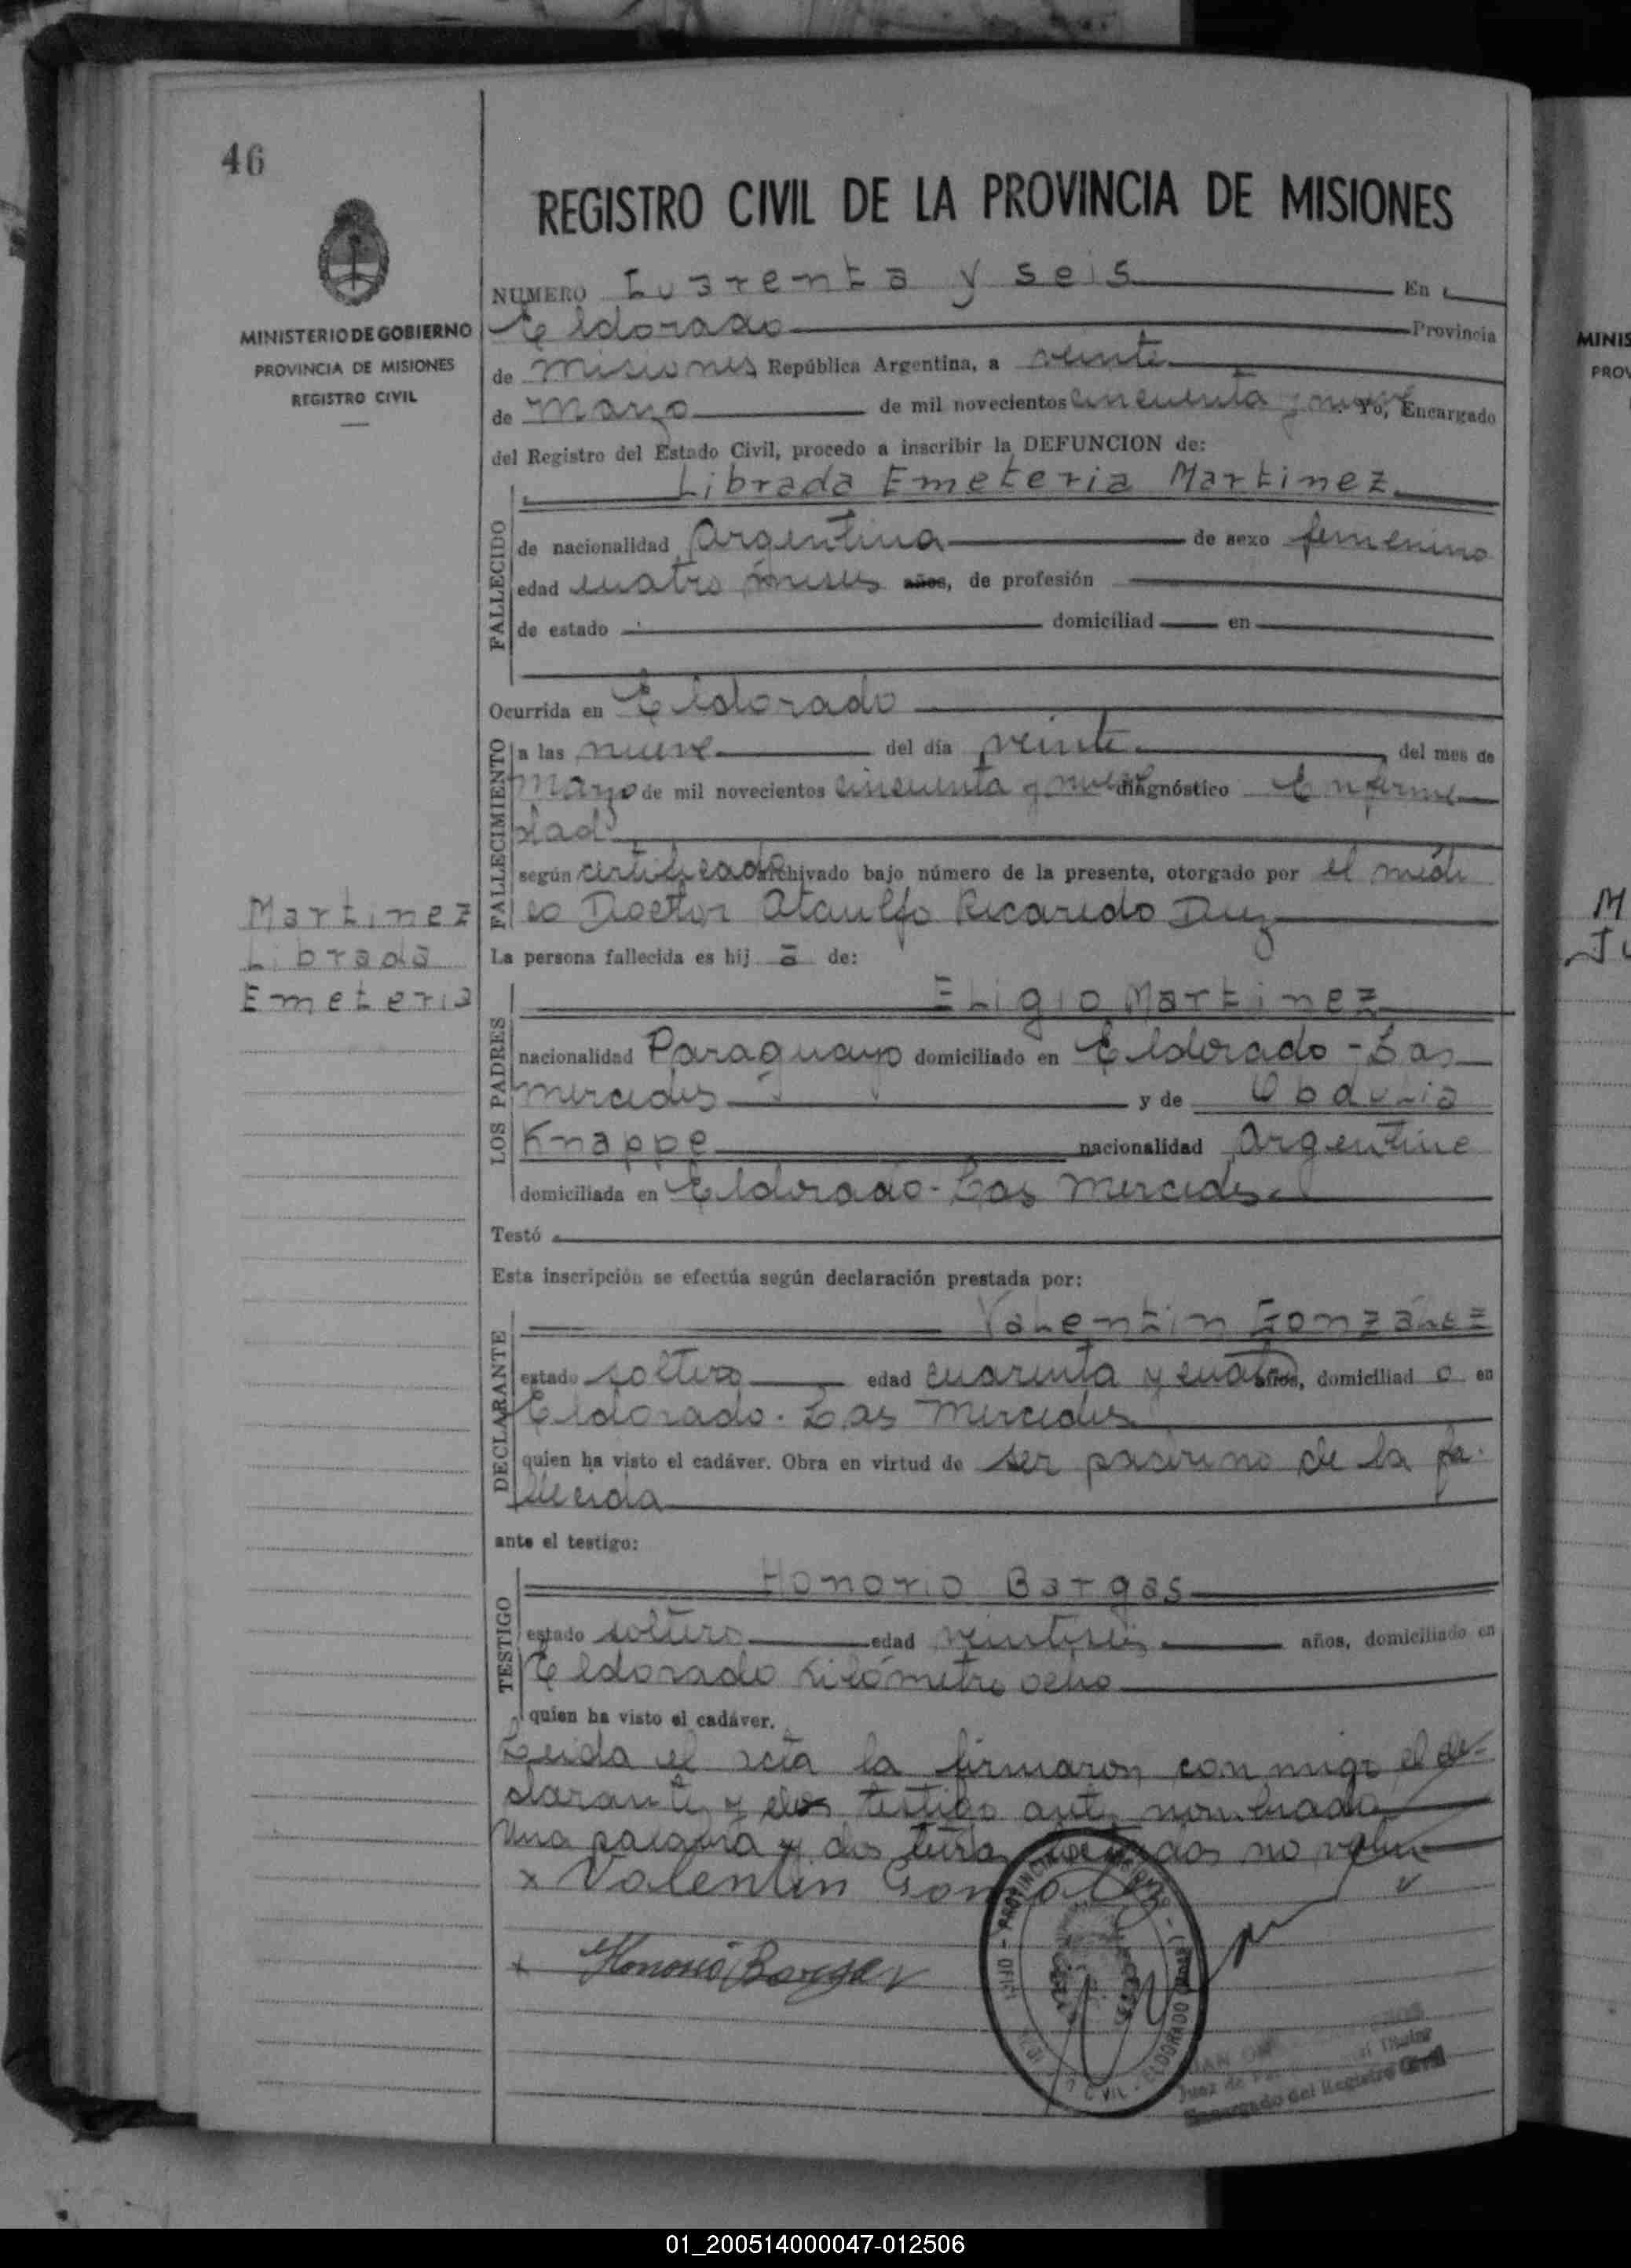 46
REGISTRO CIVIL DE LA PROVINCIA DE MISIONES
MINISTERIO DE GOBIERNO
PROVINCIA DE MISIONES
REGISTRO CIVIL
NUMERO Cuarenta y seis En
Eldorado Provincia
de Misiones República Argentina, a veinte
de Marzo de mil novecientos cincuenta y nueve Yo, Encargado
del Registro del Estado Civil, procedo a inscribir la DEFUNCION de:
Librada Emeteria Martinez
FALLECIDO
de nacionalidad Argentina de sexo femenino
edad cuatro meses años, de profesión
de estado domiciliad en
Ocurrida en Eldorado
FALLECIMIENTO
a las nueve del día veinte del mes de
Marzo de mil novecientos cincuenta y nueve diagnóstico Enferme
dad
según certificado archivado bajo número de la presente, otorgado por el médi
co Doctor Ataulfo Ricardo Duz
Martinez
Librada
Emeteria
La persona fallecida es hij a de:
LOS PADRES
Eligio Martinez
nacionalidad Paraguayo domiciliado en Eldorado - Las
Mercedes y de Obdulia
Knappe nacionalidad Argentina
domiciliada en Eldorado - Las Mercedes
Testó
Esta inscripción se efectúa según declaración prestada por:
DECLARANTE
Valentin González
estado soltero edad cuarenta y cuatro años, domiciliad o en
Eldorado - Las Mercedes
quien ha visto el cadáver. Obra en virtud de ser padrino de la fa-
llecida
ante el testigo:
TESTIGO
Honorio Bargas
estado soltero edad veintiseis años, domiciliado en
Eldorado kilómetro ocho
quien ha visto el cadáver.
Leida el acta la firmaron conmigo el de-
clarante y el testigo ante nombrado
Una palabra y dos letras testados no valen
x Valentin Gonzalez
x Honorio Bargas
PROVINCIA DE MISIONES
ELDORADO
Juez de Paz Titular
Encargado del Registro Civil
MINIS
PROV
M
01_200514000047-012506